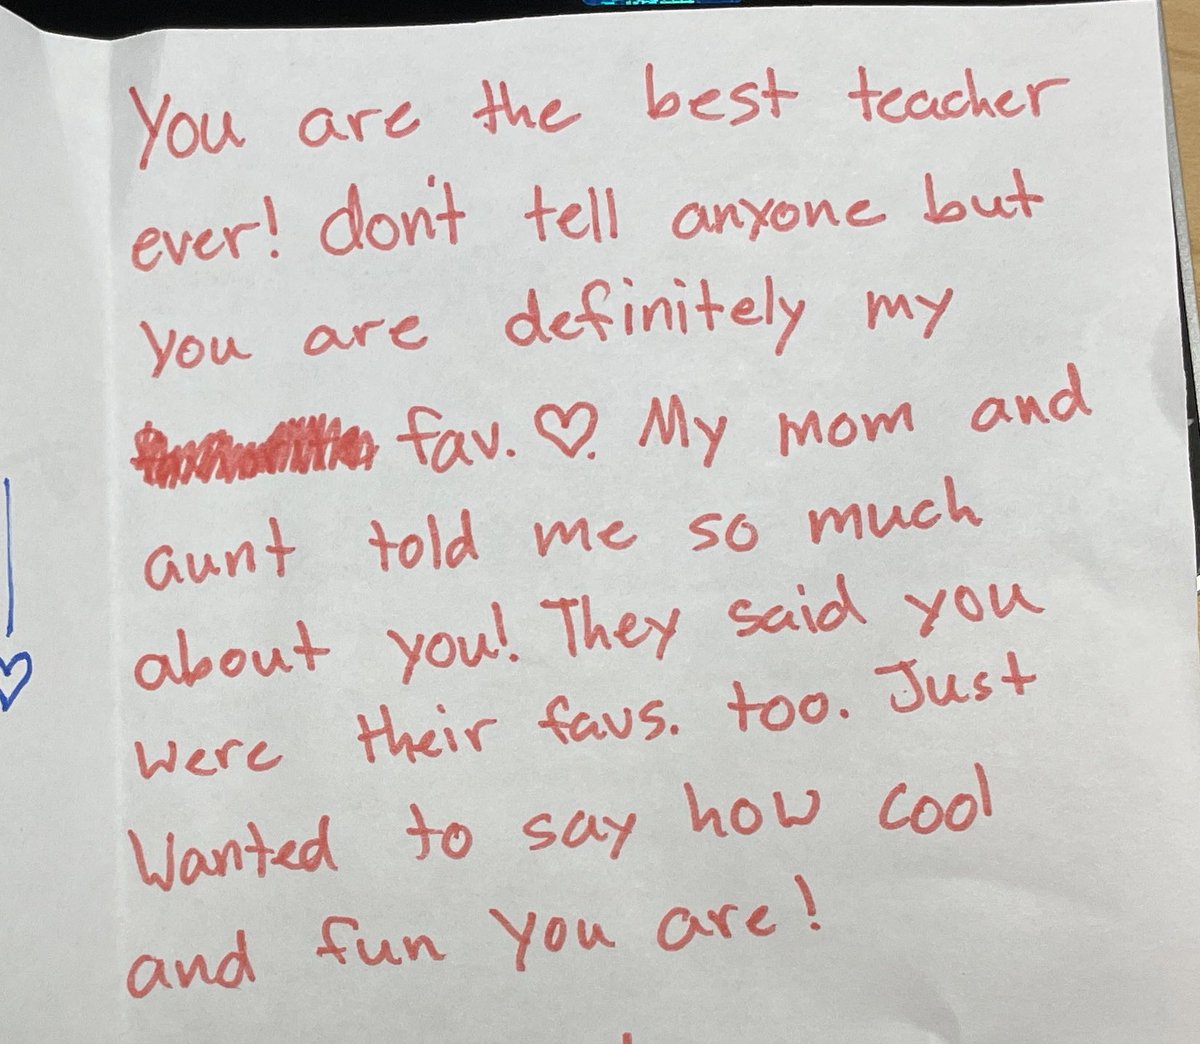 You are the best teacher
ever! don't tell anyone but
you are definitely my
fav. ♡. My mom and
aunt told me so much
about you! They said you
were their favs. too. Just
Wanted to say how cool
and fun you are!